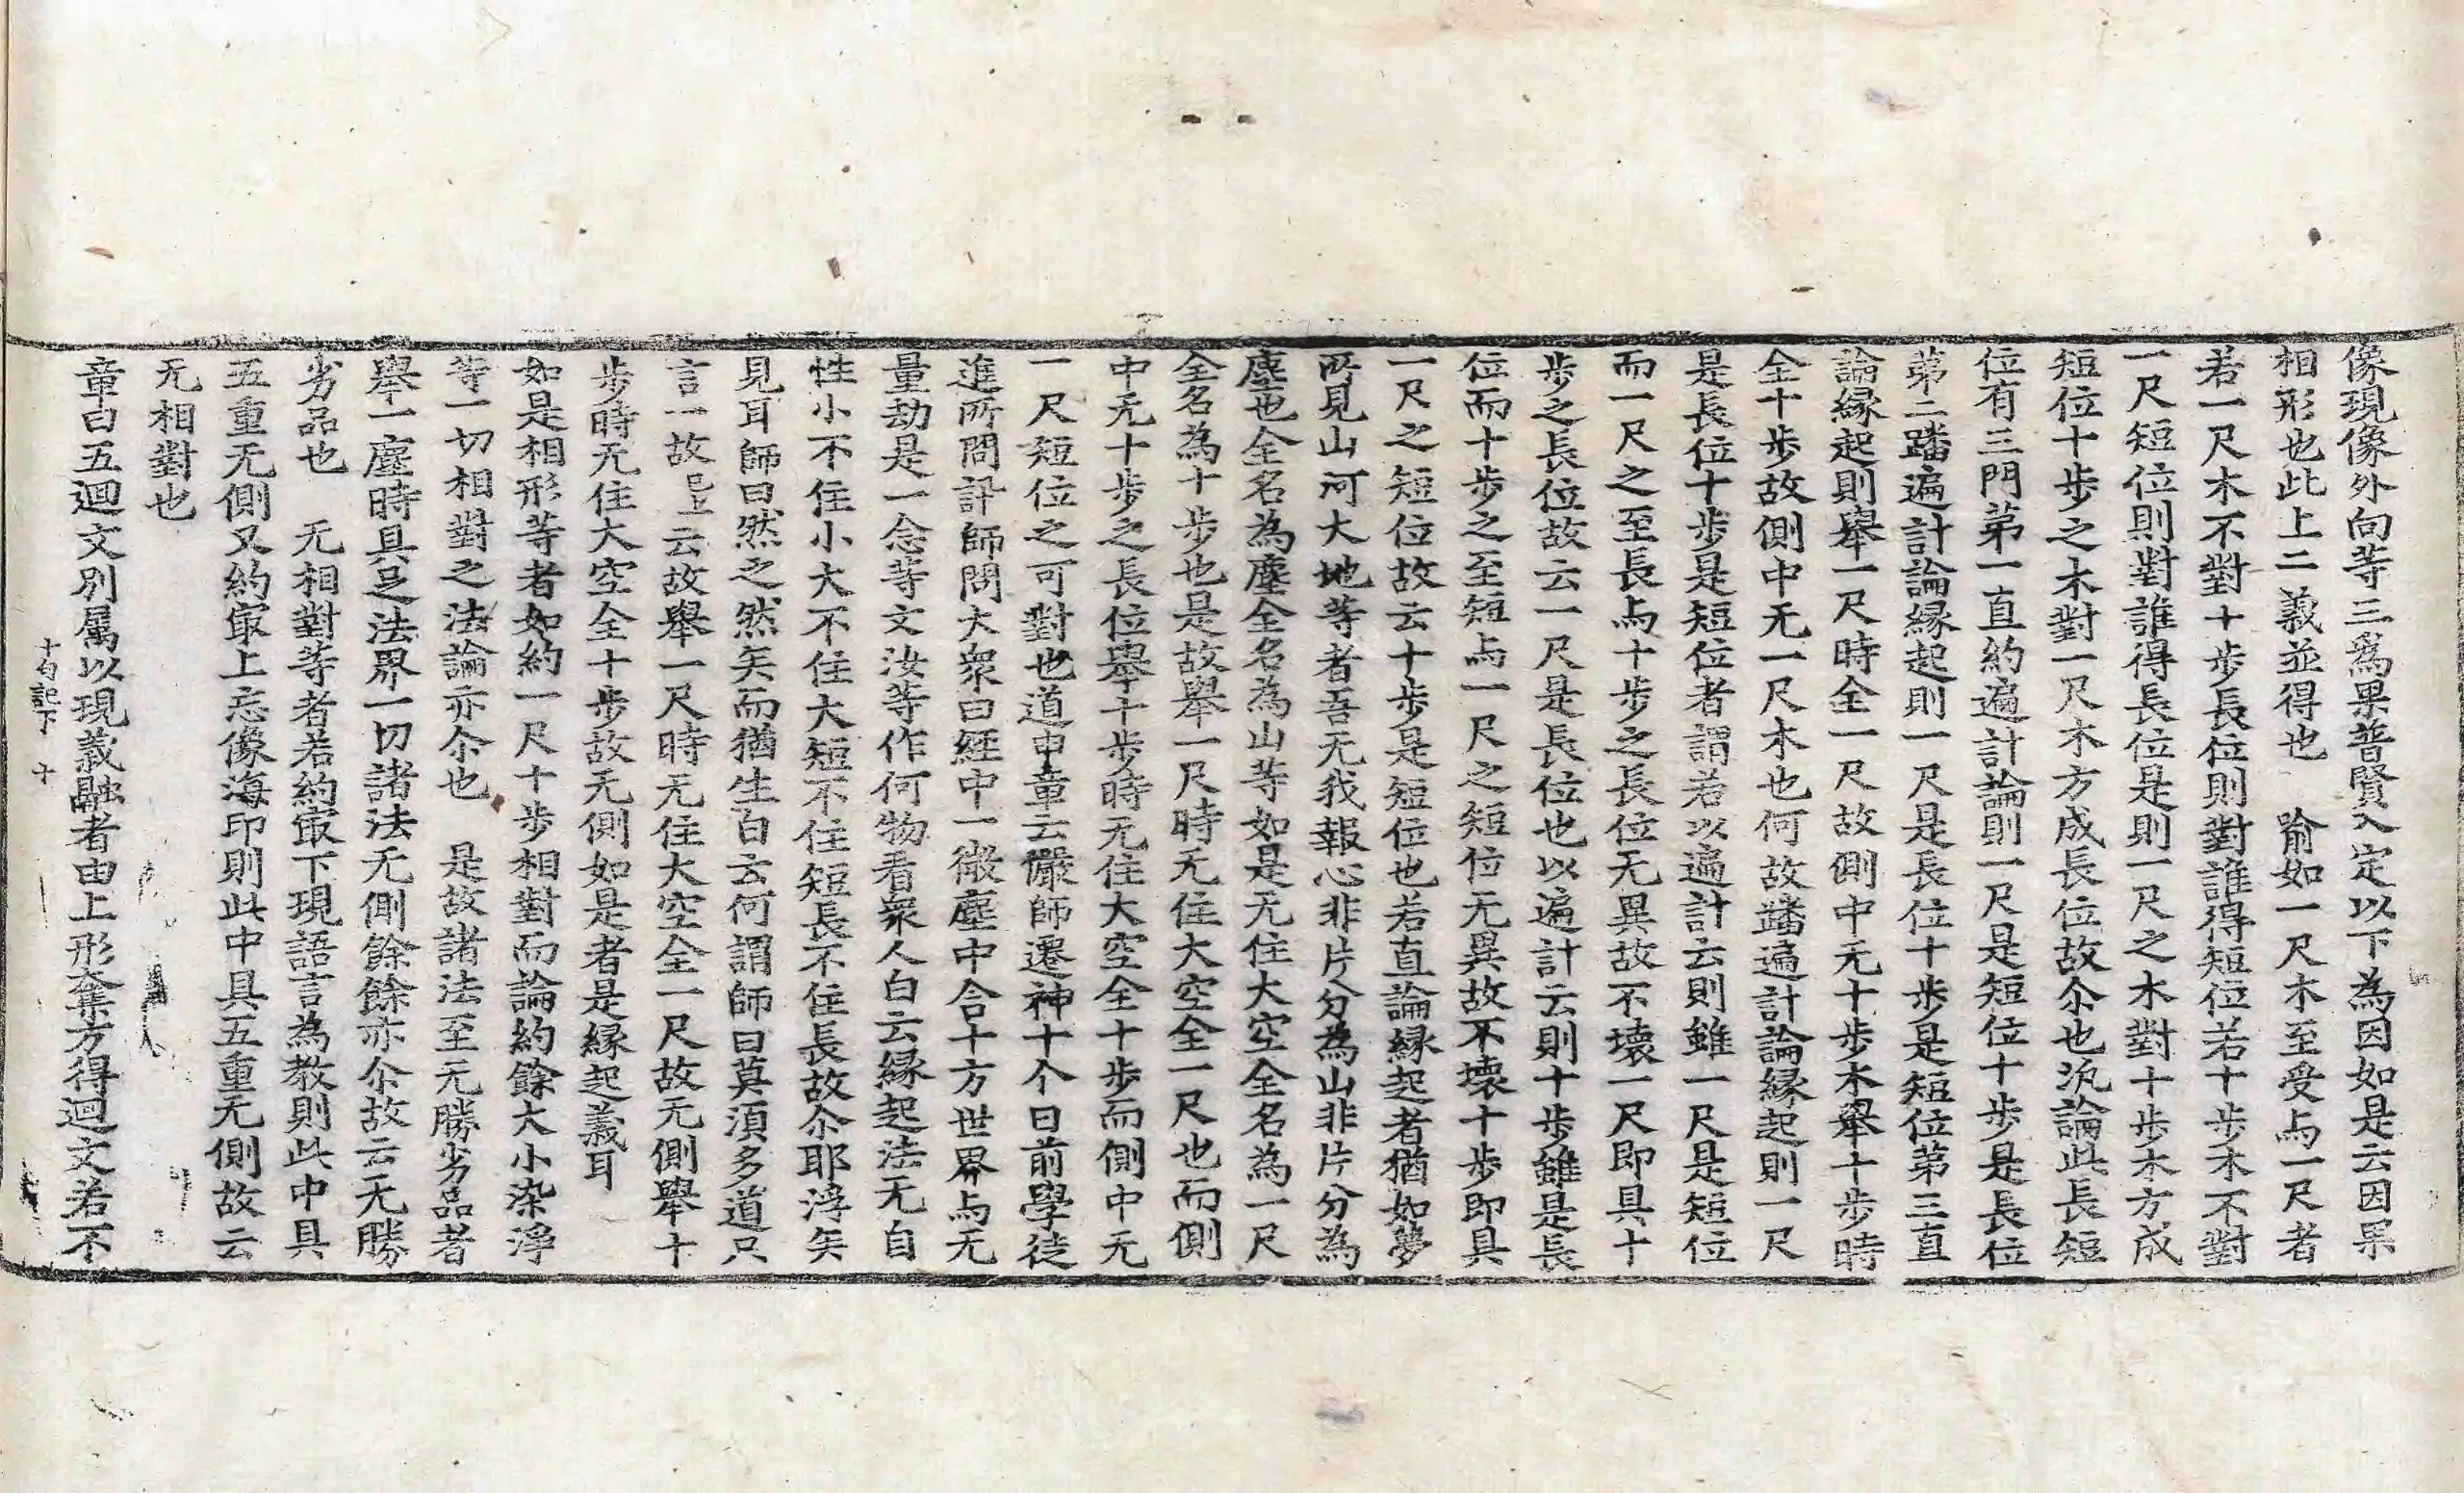 像現像外向等三爲果普賢入定以下為因如是云因果
相形也此上二義並得也　喻如一尺木至受与一尺者
若一尺木不對十步長位則對誰得短位若十步木不對
一尺短位則對誰得長位是則一尺之木對十步木方成
短位十步之木對一尺木方成長位故尒也汎論此長短
位有三門苐一直約遍計論則一尺是短位十步是長位
苐二躊遍計論縁起則一尺是長位十步是短位苐三直
論縁起則舉一尺時全一尺故側中无十步木舉十步時
全十步故側中无一尺木也何故躊遍計論縁起則一尺
是長位十步是短位者謂若以遍計云則雖一尺是短位
而一尺之至長与十步之長位无異故不壊一尺即具十
步之長位故云一尺是長位也以遍計云則十步雖是長
位而十步之至短与一尺之短位无異故不壊十步即具
一尺之短位故云十步是短位也若直論縁起者猶如夢
所見山河大地等者吾无我報心非片分為山非片分為
塵也全名為塵全名為山等如是无住大空全名為一尺
全名為十步也是故舉一尺時无住大空全一尺也而側
中无十步之長位舉十步時无住大空全十步而側中无
一尺短位之可對也道申章云儼師遷神十个日前學徒
進所問訃師問大衆曰経中一微塵中含十方世界与无
量劫是一念等文汝等作何物看衆人白云縁起法无自
性小不住小大不住大短不住短長不住長故尒耶淨矣
見耳師曰然之然矣而猶生白云何謂師曰莫湏多道只
言一故已上云故舉一尺時无住大空全一尺故无側舉十
步時无住大空全十步故无側如是者是縁起義耳
如是相形等者如約一尺十步相對而論約餘大小染淨
等一切相對之法論亦尒也　是故諸法至无勝劣品者
舉一塵時具足法界一切諸法无側餘餘亦尒故云无勝
劣品也　无相對等者若約冣下現語言為教則此中具
五重无側又約冣上忘像海印則此中具五重无側故云
无相對也
章曰五迴文別屬以現義融者由上形奪方得迴文若不
十句記下　十